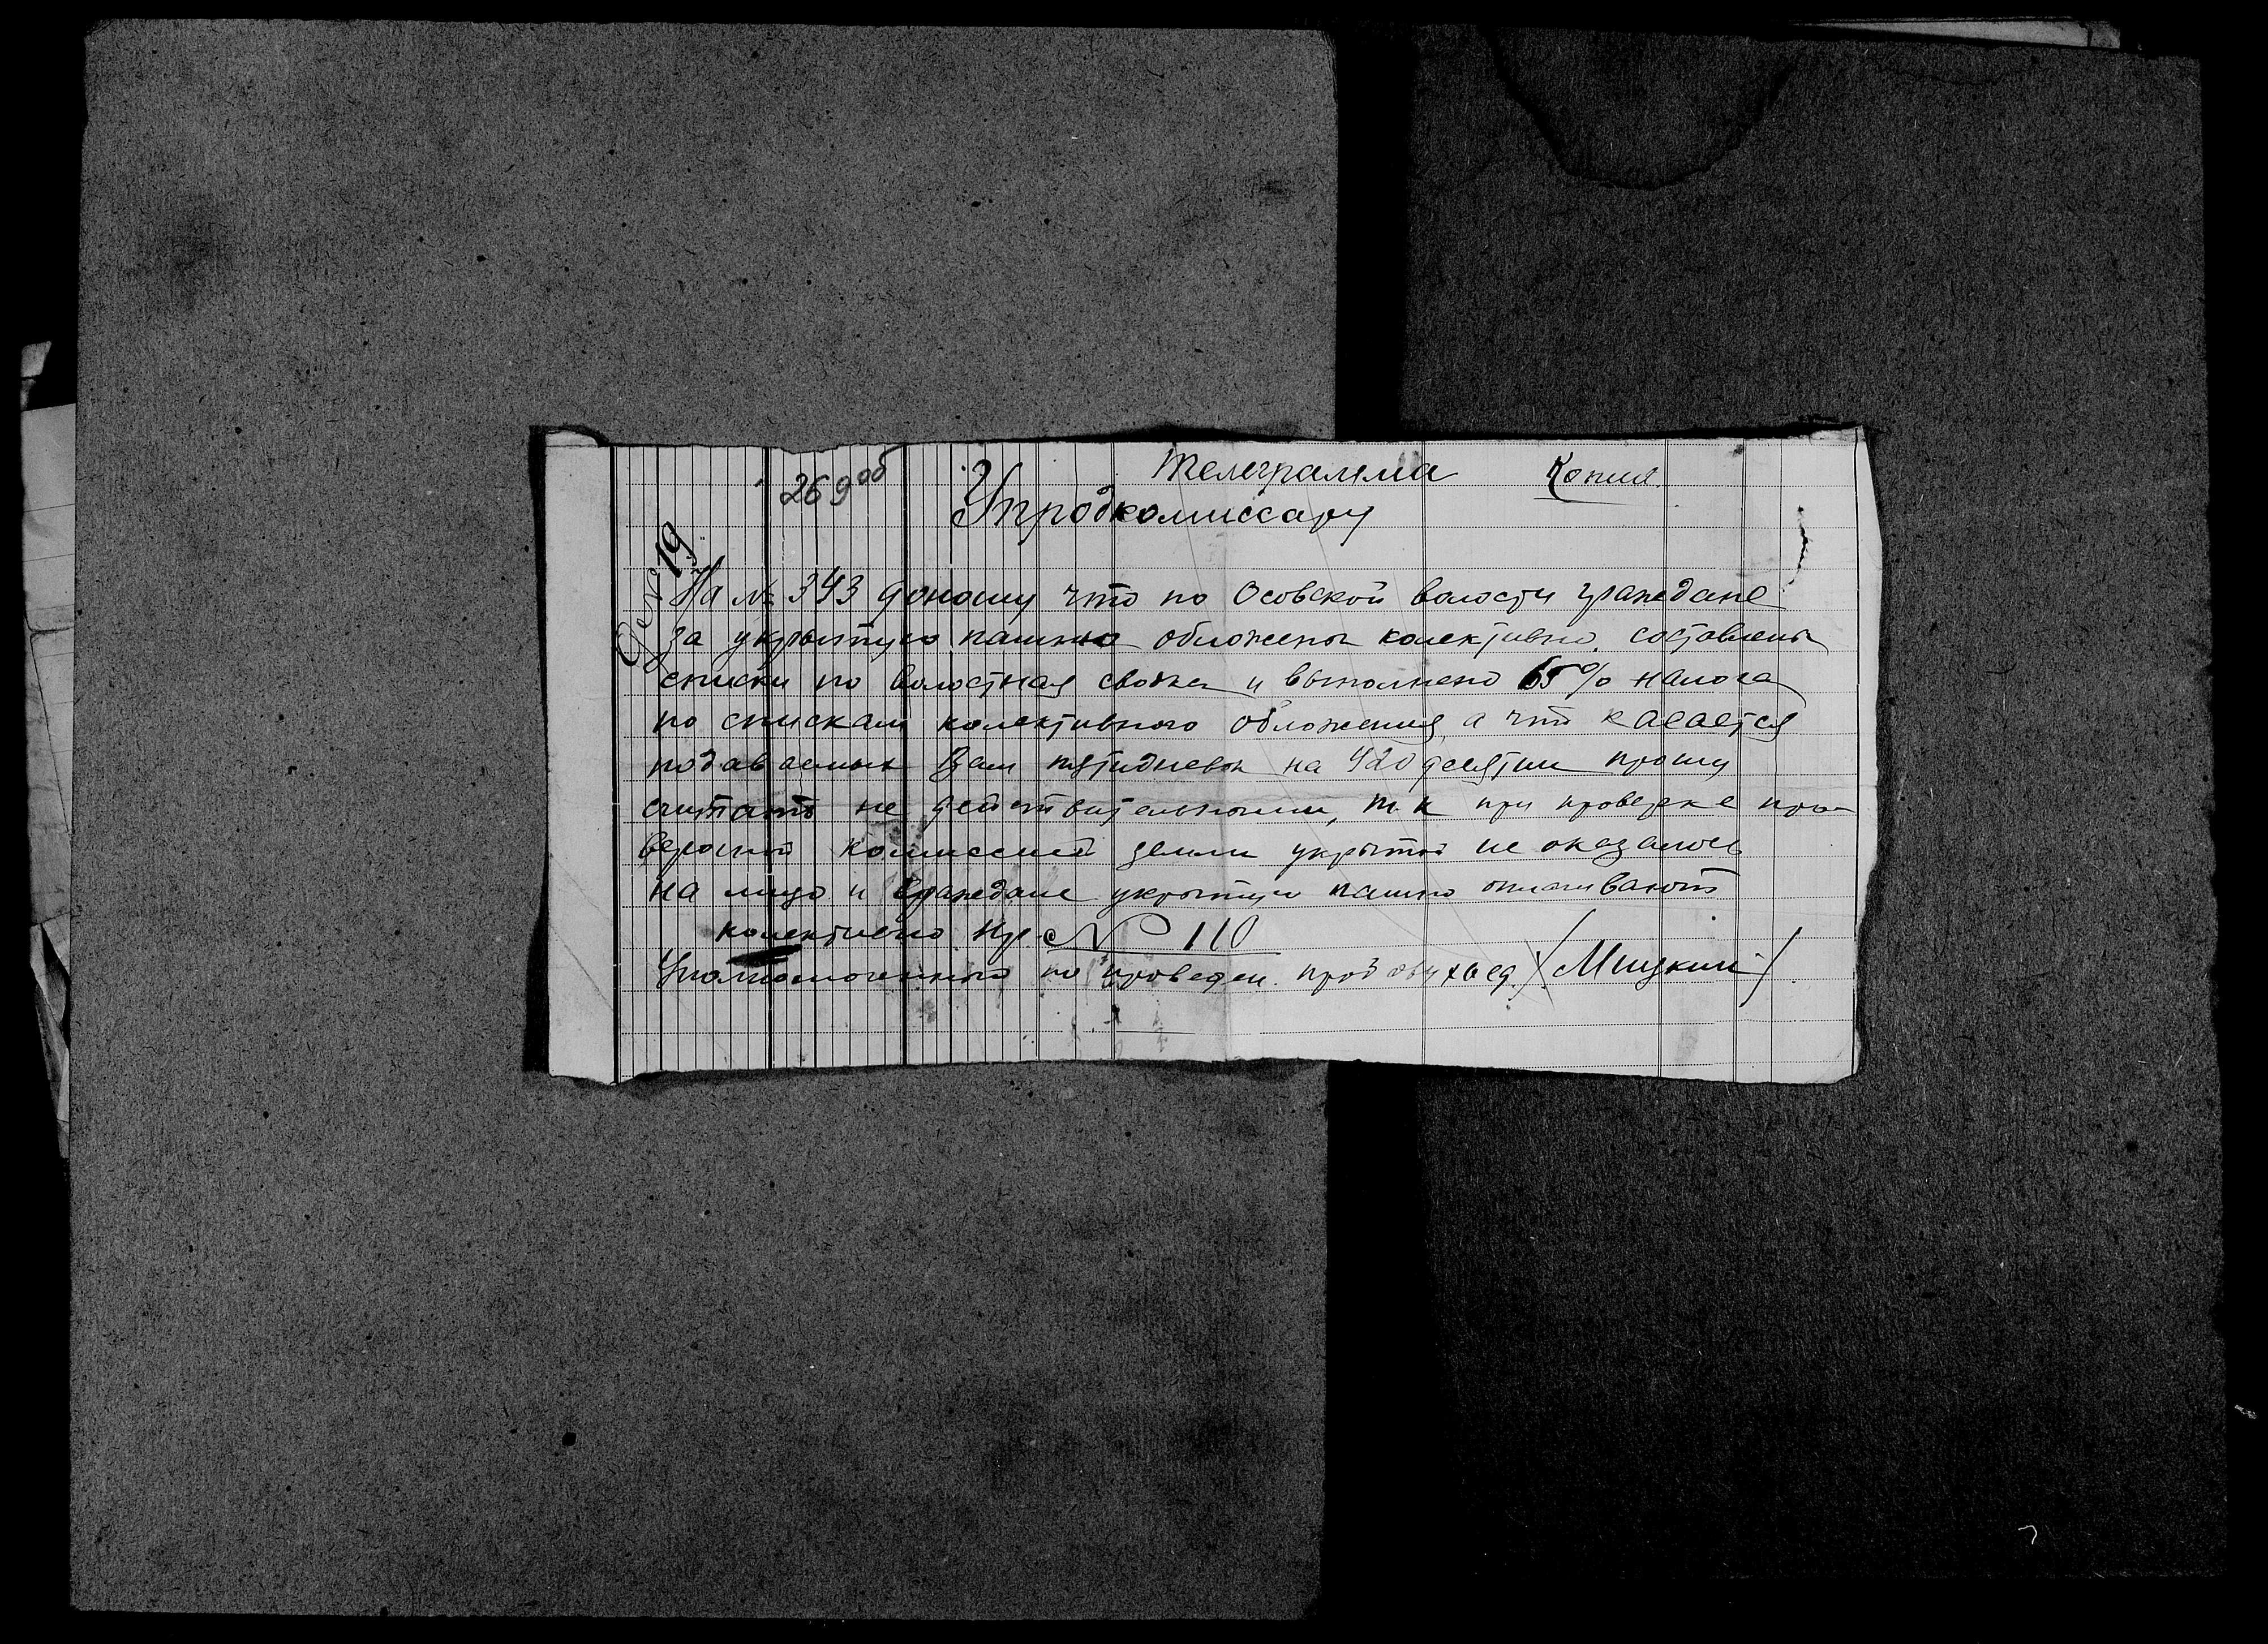 269 об
Телеграмма Копия.
Упродкомиссару
Дек 19
На № 343 доношу что по Осовской волости граждане
за укрытую пашню обложены колективно, составлены
списки по волостная сводка и выполнено 65% налога
по спискам колективного обложения, а что касается
подаваемых Вам пятидневок на 420 десятин прошу
считать не действительными, т.к при проверке про-
верочной комиссией земли укрытой не оказалось
на лицо и граждане укрытую пашню оплачивают
колективно Нр. № 110
Уполномоченный по проведен. /Мицкий/